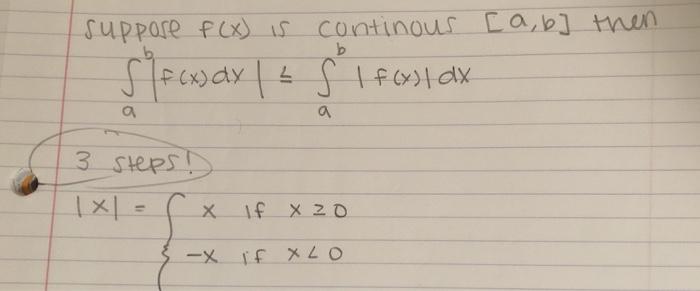 suppose f(x) is continous [a,b] then
∫_a^b |f(x)dx| ≤ ∫_a^b |f(x)|dx
3 steps!
|x| = { x if x ≥ 0
-x if x < 0